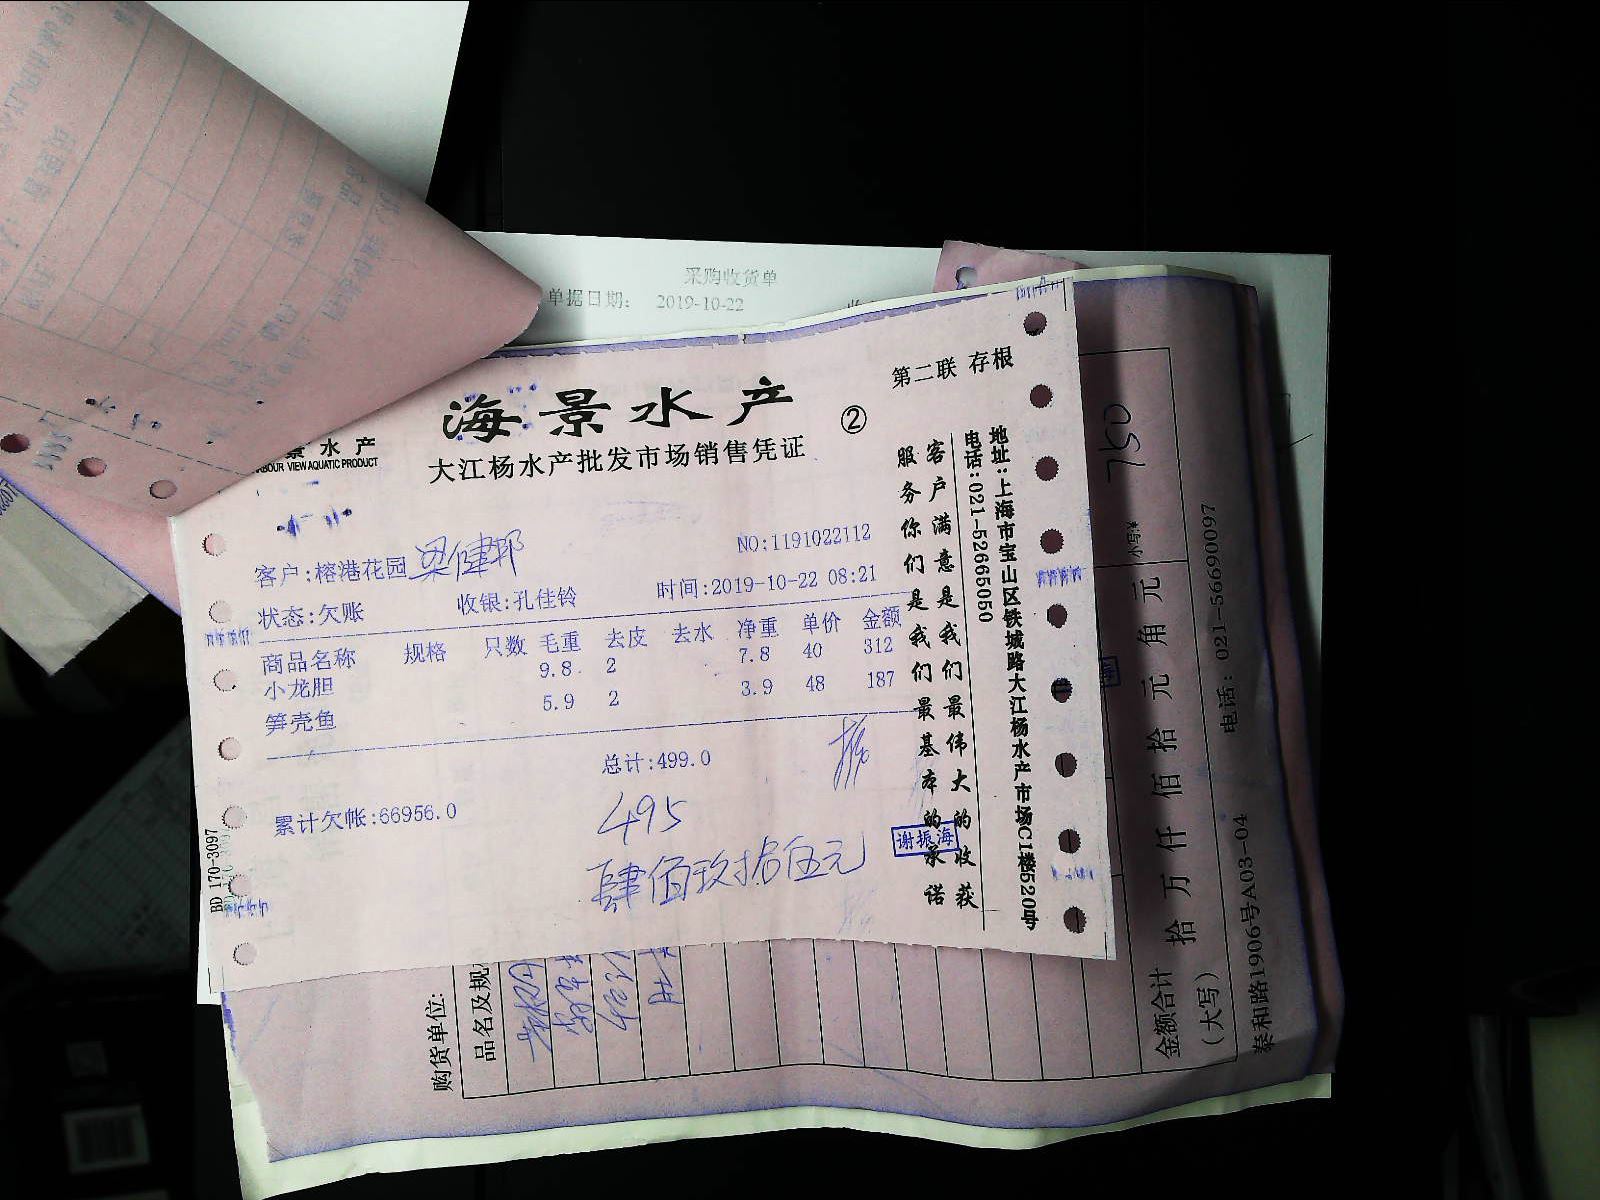 采购收货单
单据日期： 2019-10-22
第二联 存根
海景水产
②
景水产
BOUR VIEW AQUATIC PRODUCT
大江杨水产批发市场销售凭证
NO:1191022112
客户:榕港花园 梁健邦
状态:欠账 收银:孔佳铃 时间:2019-10-22 08:21
商品名称 规格 只数 毛重 去皮 去水 净重 单价 金额
小龙胆 9.8 2 7.8 40 312
笋壳鱼 5.9 2 3.9 48 187
总计:499.0
累计欠帐:66956.0
495
肆佰玖拾伍元
谢振海
BD 170-3097
客户满意是我们最伟大的收获
服务你们是我们最基本的承诺
地址:上海市宝山区铁城路大江杨水产市场C1楼520号
电话:021-52665050
购货单位:
品名及规
750
小写:¥
金额合计
（大写）
拾 万 仟 佰 拾 元 角 元
泰和路1906号A03-04
电话: 021-56690097